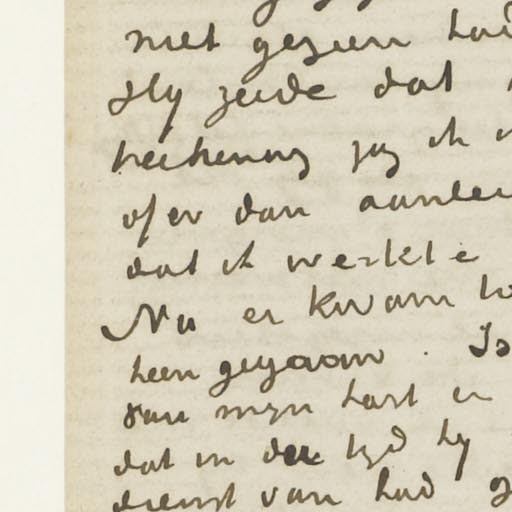 niet gezien had
Hij zeide dat
teekening zag ik
of er dan aanlei
dat ik werkte
Nu er kwam
heen gegaan. Is
van mijn hart en
dat in den tijd hij
dienst van had